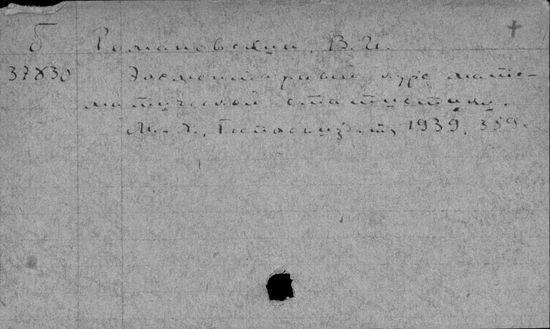 б Романовский, В. И.
37830 Элементарный курс мате-
матической статистики.
М.-Л., Госпланиздат, 1939. 359.